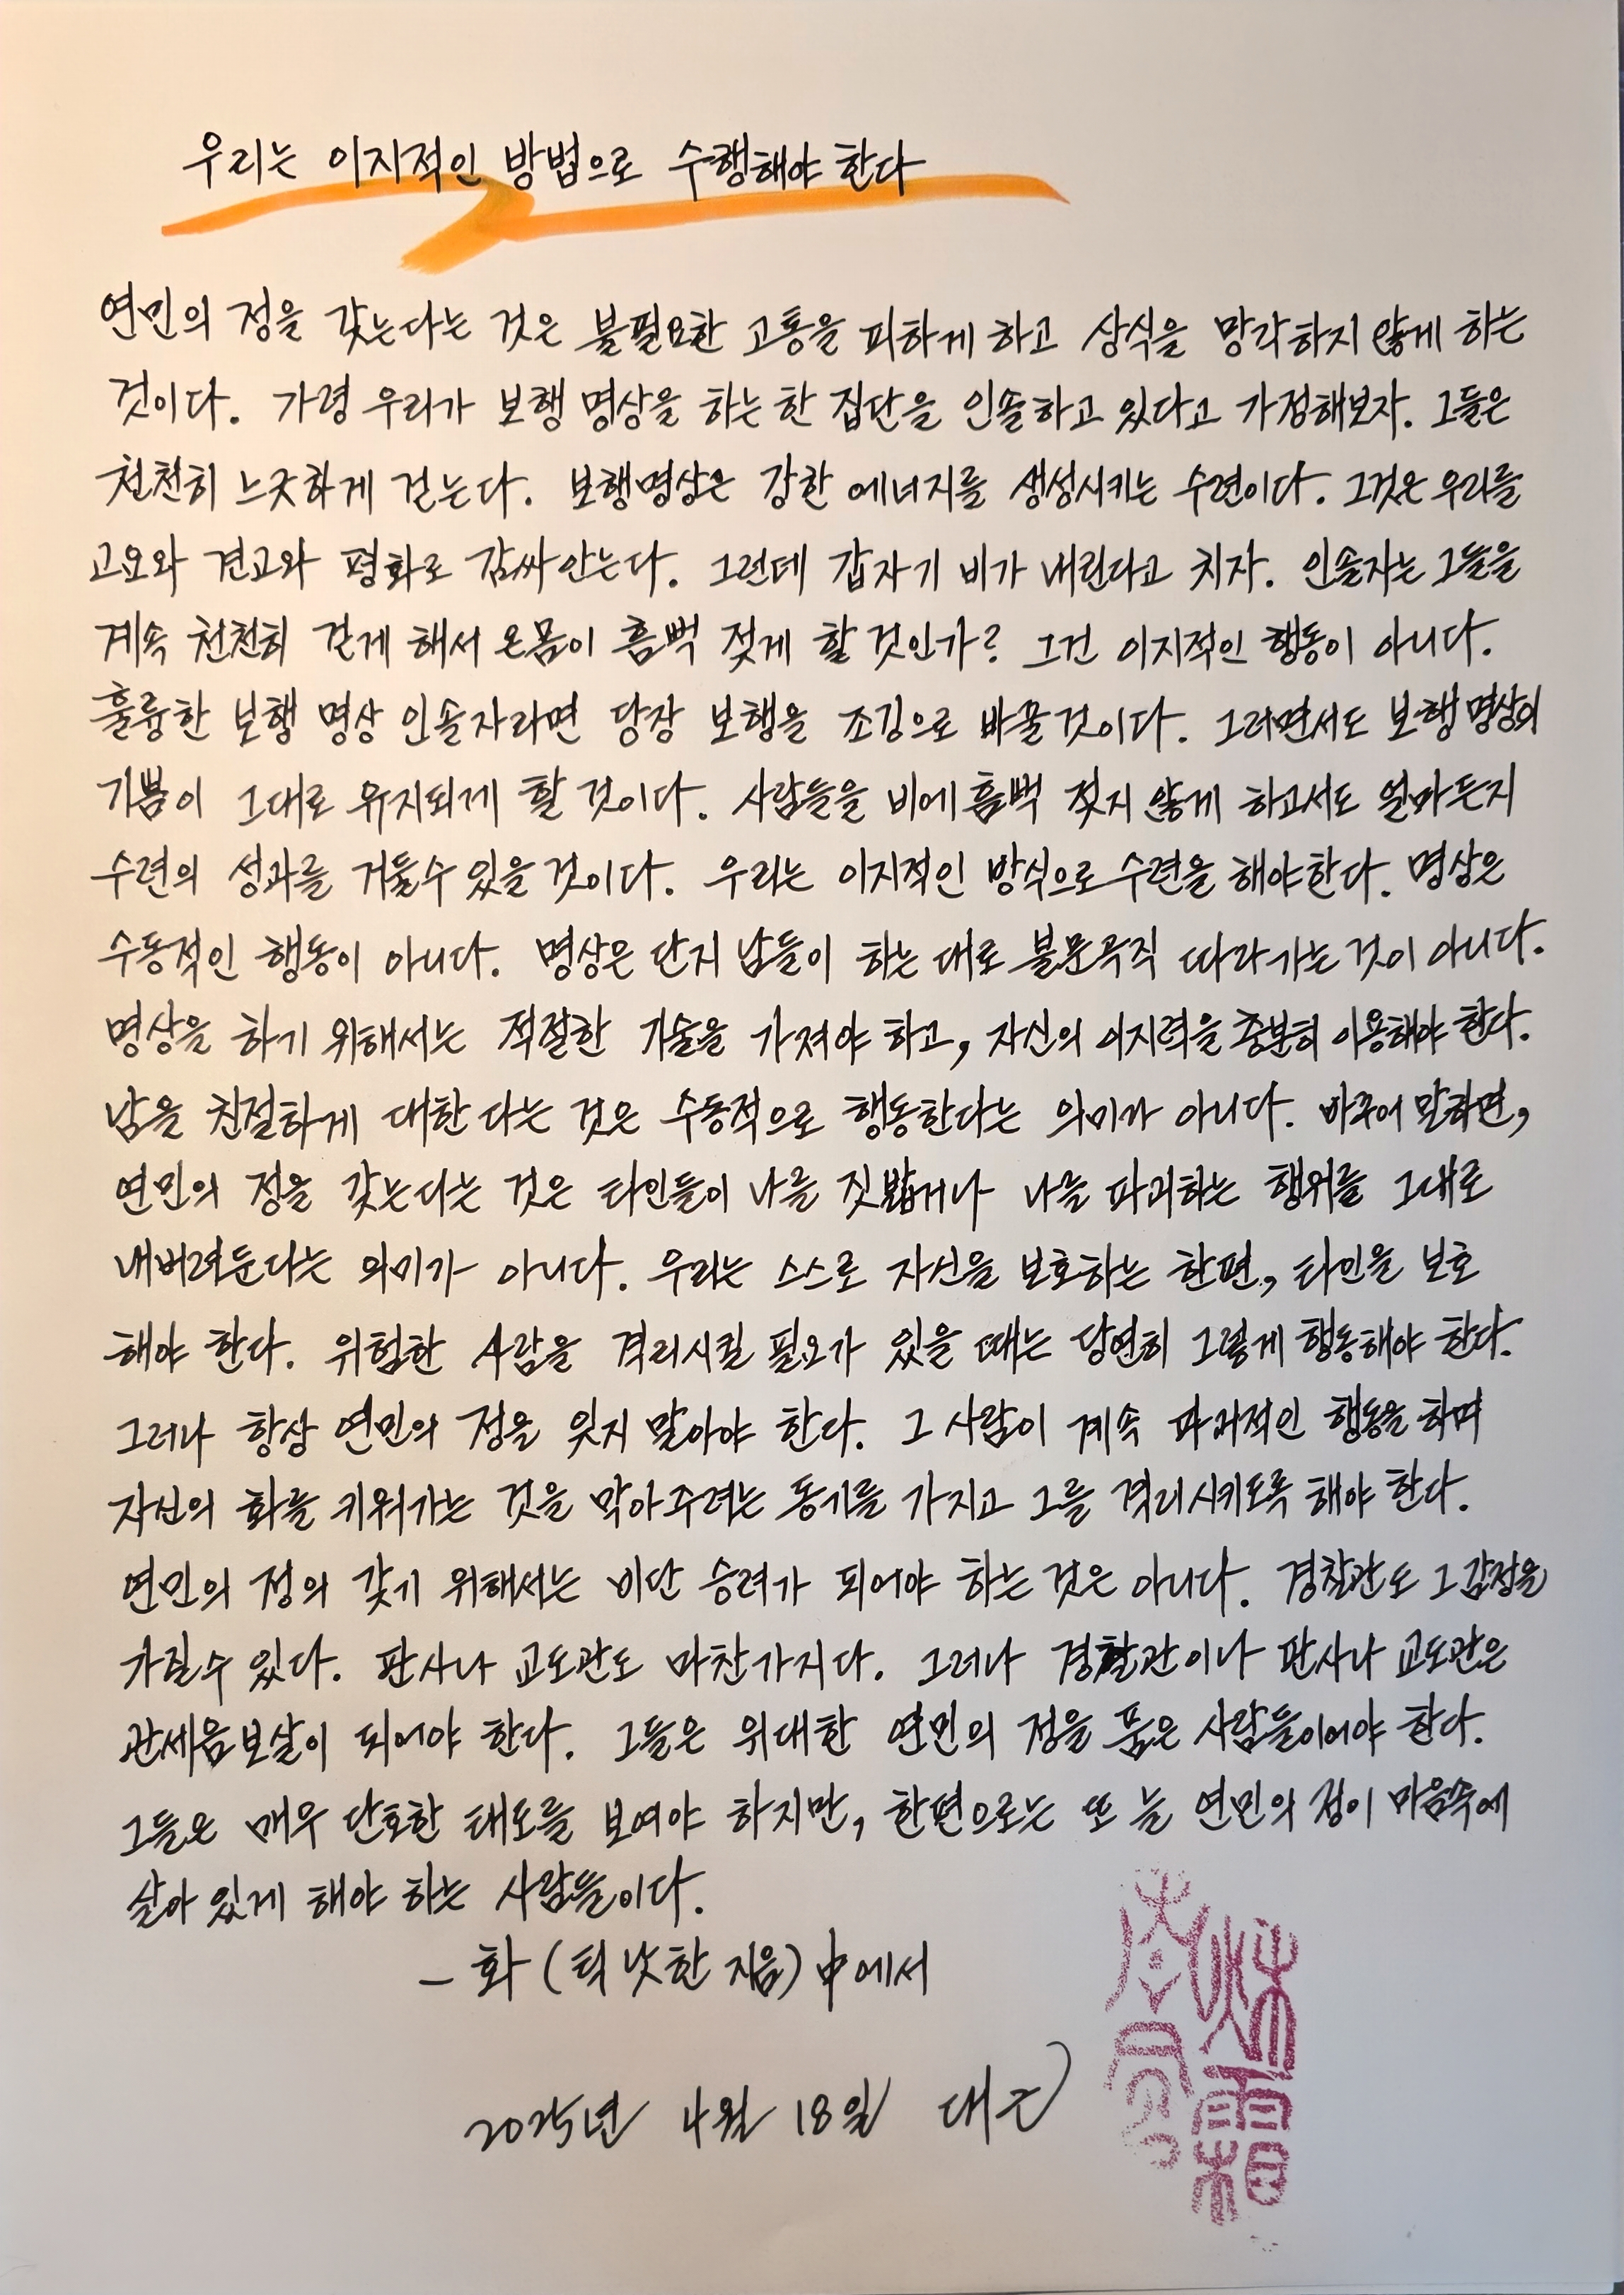 우리는 이지적인 방법으로 수행해야 한다
연민의 정을 갖는다는 것은 불필요한 고통을 피하게 하고 상식을 망각하지 않게 하는
것이다. 가령 우리가 보행 명상을 하는 한 집단을 인솔하고 있다고 가정해보자. 그들은
천천히 느긋하게 걷는다. 보행명상은 강한 에너지를 생성시키는 수련이다. 그것은 우리를
고요와 견고와 평화로 감싸안는다. 그런데 갑자기 비가 내린다고 치자. 인솔자는 그들을
계속 천천히 걷게 해서 온몸이 흠뻑 젖게 할 것인가? 그건 이지적인 행동이 아니다.
훌륭한 보행 명상 인솔자라면 당장 보행을 조깅으로 바꿀것이다. 그러면서도 보행명상의
기쁨이 그대로 유지되게 할 것이다. 사람들을 비에 흠뻑 젖지 않게 하고서도 얼마든지
수련의 성과를 거둘수 있을 것이다. 우리는 이지적인 방식으로 수련을 해야한다. 명상은
수동적인 행동이 아니다. 명상은 단지 남들이 하는 대로 불문곡직 따라가는 것이 아니다.
명상을 하기 위해서는 적절한 기술을 가져야 하고, 자신의 이지력을 충분히 이용해야 한다.
남을 친절하게 대한다는 것은 수동적으로 행동한다는 의미가 아니다. 바꾸어 말하면,
연민의 정을 갖는다는 것은 타인들이 나를 짓밟거나 나를 파괴하는 행위를 그대로
내버려둔다는 의미가 아니다. 우리는 스스로 자신을 보호하는 한편, 타인을 보호
해야 한다. 위험한 사람을 격리시킬 필요가 있을 때는 당연히 그렇게 행동해야 한다.
그러나 항상 연민의 정을 잊지 말아야 한다. 그 사람이 계속 파괴적인 행동을 하며
자신의 화를 키워가는 것을 막아주려는 동기를 가지고 그를 격리시키도록 해야 한다.
연민의 정의 갖기 위해서는 비단 승려가 되어야 하는 것은 아니다. 경찰관도 그 감정을
가질수 있다. 판사나 교도관도 마찬가지다. 그러나 경찰관이나 판사나 교도관은
관세음보살이 되어야 한다. 그들은 위대한 연민의 정을 품은 사람들이어야 한다.
그들은 매우 단호한 태도를 보여야 하지만, 한편으로는 또 늘 연민의 정이 마음속에
살아 있게 해야 하는 사람들이다.
- 화 (틱 낫한 지음) 中에서
2025년 4월 18일 대근